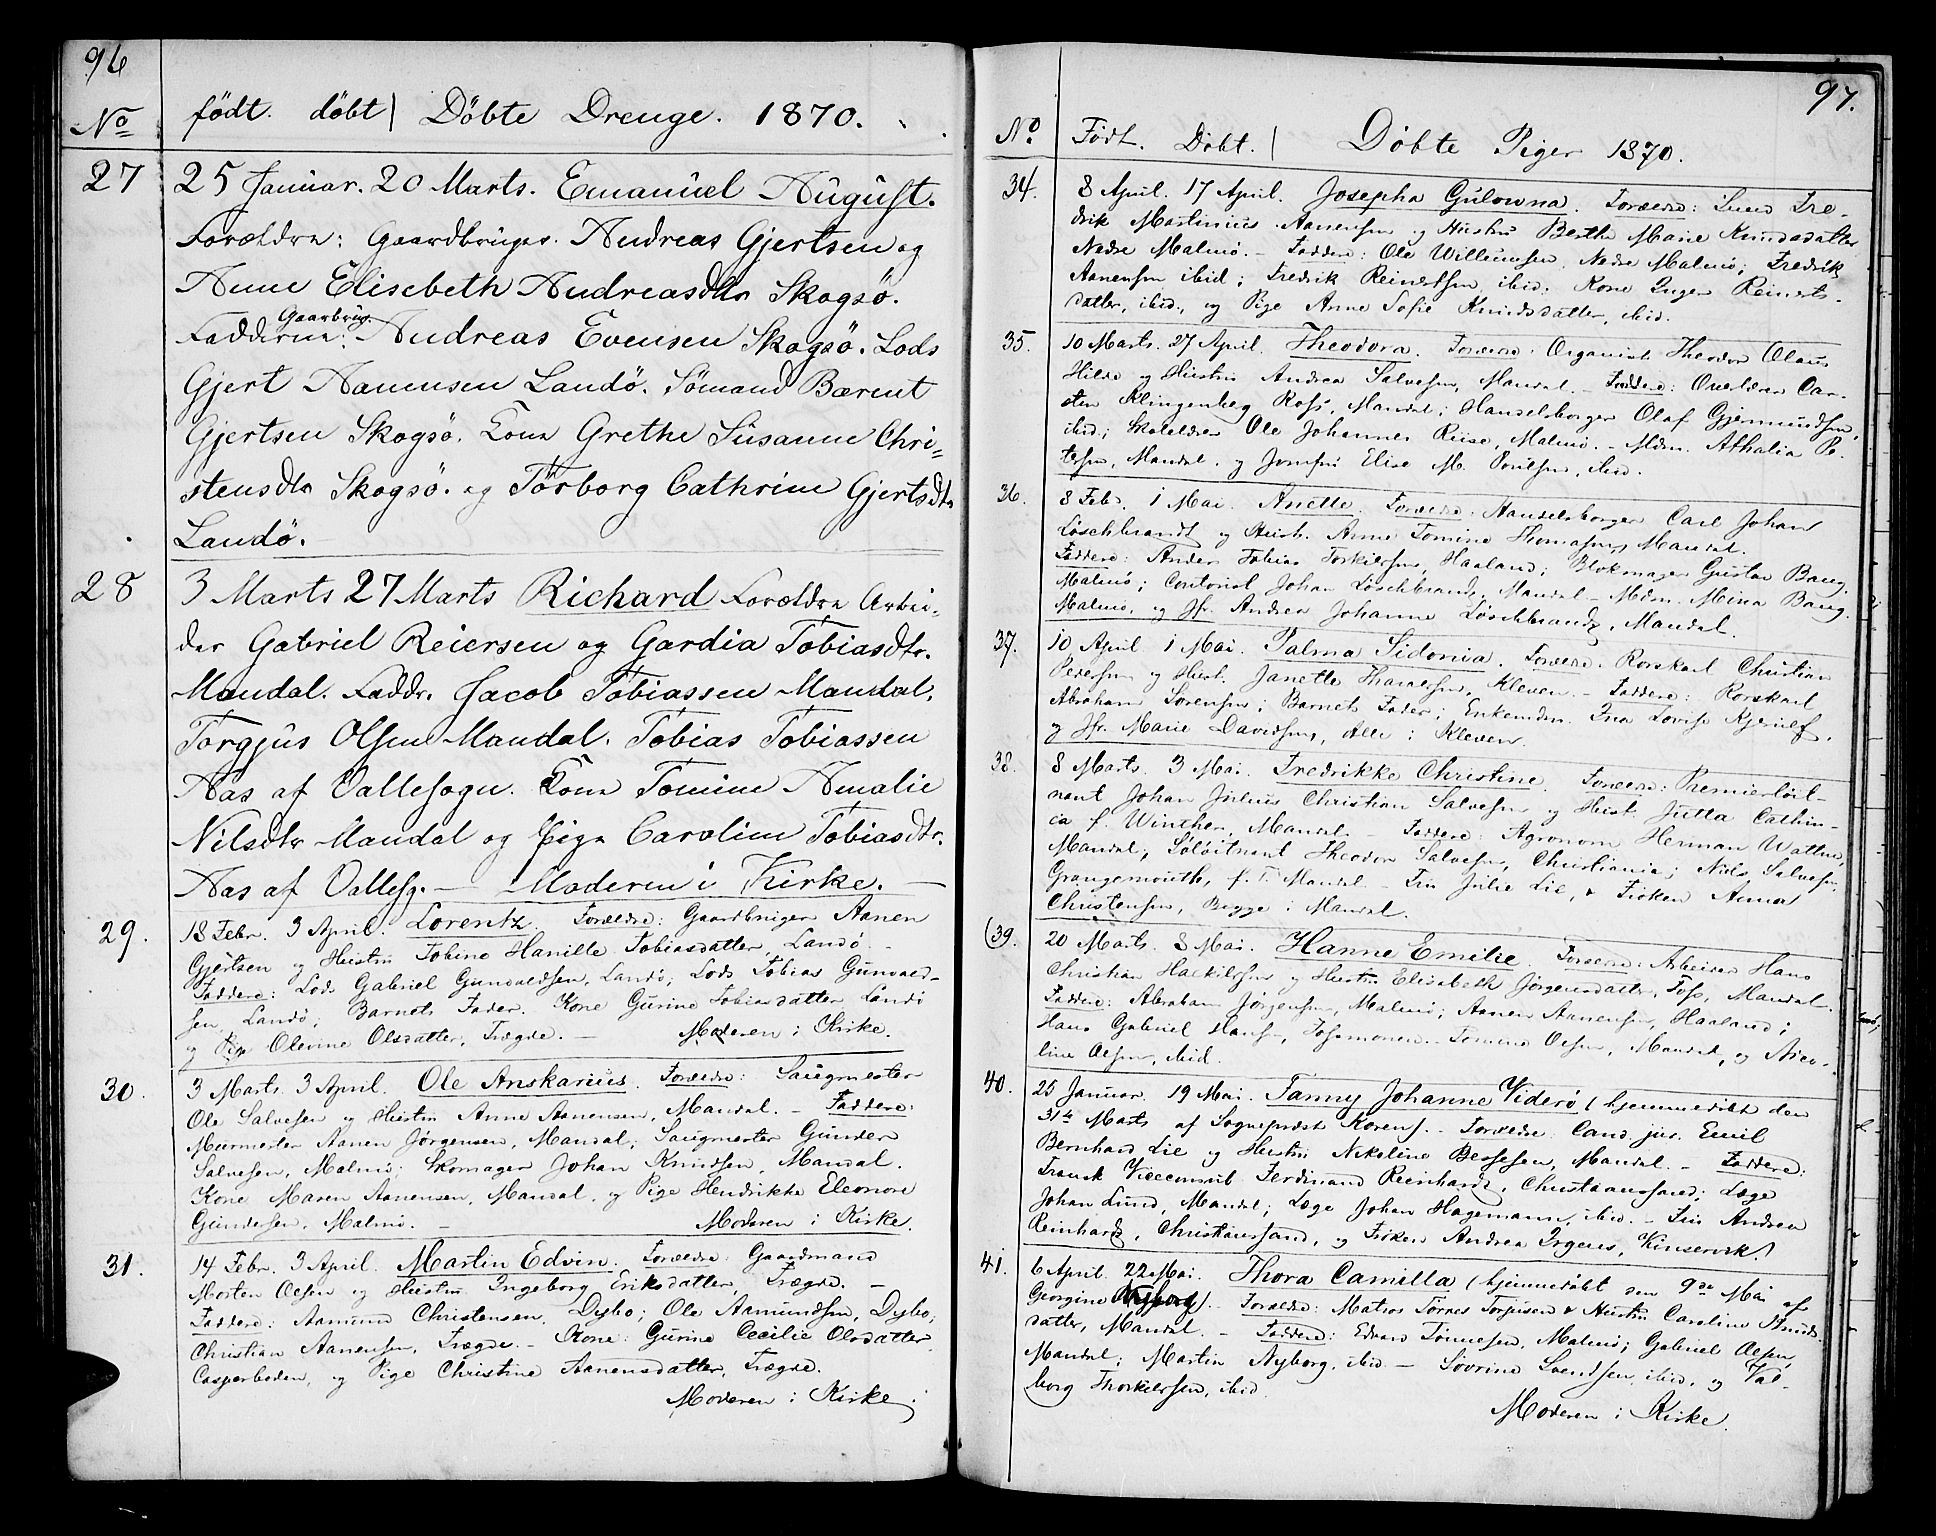 96
No født. døbt | Døbte Drenge. 1870.
27 25 Januar. 20 Marts. Emanuel August.
Forældre: Gaardbruger. Andreas Gjertsen og
Anne Elisebeth Andreasdtr Skogsö.
Gaarbrug.
Faddere: Andreas Evensen Skogsö. Lods
Gjert Aanensen Landö. Sömand Bærent
Gjertsen Skogsö. Kone Grethe Susanne Chri-
stensdtr Skogsö. og Törborg Cathrine Gjertsdtr
Landö.
28 3 Marts 27 Marts Richard Forældre Arbei-
der Gabriel Reiersen og Gardia Tobiasdtr.
Mandal. Faddr. Jacob Tobiassen Mandal,
Torgjus Olsen Mandal. Tobias Tobiassen
Aas af Vallesogn. Kone Tomine Amalie
Nilsdtr Mandal og Pige Caroline Tobiasdtr.
Aas af Vallesg. — Moderen i Kirke. —
29. 18 Febr. 3 April. Lorentz. Forældre: Gaardbruger Aanen
Gjertsen og Hustru Tobine Hanille Tobiasdatter, Landö. —
Faddere: Lods Gabriel Gundvaldsen, Landö; Lods Tobias Gunvald-
sen, Landö; Barnets Fader. Kone Gurine Tobiasdatter Landö
og Pige Olevine Olsdatter, Trægde. — Moderen i Kirke.
30. 3 Marts. 3 April. Ole Anskarius. Forældre: Saugmester
Ole Salvesen og Hustru Anne Aanensen, Mandal. — Faddere:
Murmester Aanen Jørgensen, Mandal; Saugmester Gunder
Salvesen, Malmö; Skomager Johan Knudsen, Mandal.
Kone Maren Aanensen, Mandal, og Pige Hendrikke Eleonore
Gundersen, Malmö. — Moderen i Kirke.
31. 14 Febr. 3 April. Martin Edvin. Forældre: Gaardmand
Morten Olsen og Hustru Ingeborg Eriksdatter, Trægde. —
Faddere: Aamund Christensen, Dybo; Ole Aamundsen, Dybo;
Christian Aanensen, Trægde. — Kone: Gurine Cecilie Olsdatter
Casperheden, og Pige Christine Aanensdatter, Trægde.
Moderen i Kirke.
97.
No. Født. Døbt. | Døbte Piger 1870.
34. 8 April. 17 April. Josepha Gulowna. Forældre: Fre-
drik Martinius Aanensen og Hustru Berthe Marie Knudsdatter
Nedre Malmö. — Faddere: Ole Willumsen, Nedre Malmö; Fredrik
Aanensen ibid; Fredrik Reinertsen, ibid. Kone Inger Reinerts-
datter, ibid., og Pige Anne Sofie Knudsdatter, ibid.
35. 10 Marts. 27 April. Theodora. Forældre: Organist Theodor Olaus
Hilde og Hustru Andrea Salvesen, Mandal. — Faddere: Overlærer Car-
sten Klingenberg Ross, Mandal; Handelsborger Olaf Gjermundsen,
ibid; Skolelærer Ole Johannes Riise, Malmö. — Mdm. Athalia Pe-
tersen, Mandal. og Jomfru Elise M. Poulsen, ibid.
36. 8 Febr. 1 Mai. Anette. Forældre: Handelsborger Carl Johan
Löschbrandt og Hustr. Anne Tomine Thomasen, Mandal.
Faddere: Anders Tobias Torkildsen, Haaland; Blokmager Gustav Bang
Malmö; Contorist Johan Löschbrandt, Mandal — Mdm. Mina Bang.
Malmö, og Jfr. Andrea Johanne Löschbrandt, Mandal.
37. 10 April 1 Mai. Palma Sidonia. Forældre: Rorskarl Christian
Pedersen og Hust. Janette Kleven. — Faddere: Rorskarl
Abraham Sørensen; Barnets Fader; Enkemdm. Ina Lovise
og Jfr. Marie Davidsen, Alle i Kleven.
38. 8 Marts. 3 Mai. Fredrikke Christine. Forældre: Premierlöit-
nant Johan Julius Christian Salvesen og Hust. Jutta Cathin-
ca f. Winther, Mandal. — Faddere: Agronom Herman Wattne,
Mandal; Theodor Salvesen, Christiania; Niels Salvesen,
Grangemouth, f. T. Mandal. — Fru Julie Lie, & Frøken Anna
Christensen, Begge i Mandal.
(39. 20 Marts. 8 Mai. Hanne Emilie. Forældre: Arbeider Hans
Christian og Hustru Elisabeth Jørgensdatter, Foss, Mandal.
Faddere: Abraham Jørgensen, Malmö; Aanen Aanensen, Haaland;
Hans Gabriel Hansen, — Tomine Olsen, Mandal, og Nico-
line Olsen, ibid.
40. 25 Januar. 19 Mai. Fanny Johanne Viderö (hjemmedöbt den
31te Marts af Sogneprest Koren). — Forældre: Cand. jur. Emil
Bernhard Lie og Hustru Nikoline Bessesen, Mandal. — Faddere:
Fransk Viceconsul Ferdinand Reinhardt, Christianssand; Læge
Johan Lund, Mandal; Læge Johan Hagemann, ibid. — Fru Andrea
Reinhardt, Christianssand, og Frøken Andrea Irgens, Kinservik.
41. 6 April. 22 Mai. Thora Camilla (hjemmedöbt den 9de Mai af
Georgine Nyborg). — Forældre: Matros Tørres Torjusen & Hustru Caroline Knuds-
datter, Mandal. — Faddere: Edvard Tønnesen, Malmö; Gabriel Olsen,
Mandal; Martin Nyborg, ibid. — Severine Svendsen, ibid. og Val-
borg Thorkildsen, ibid.
Moderen i Kirke.